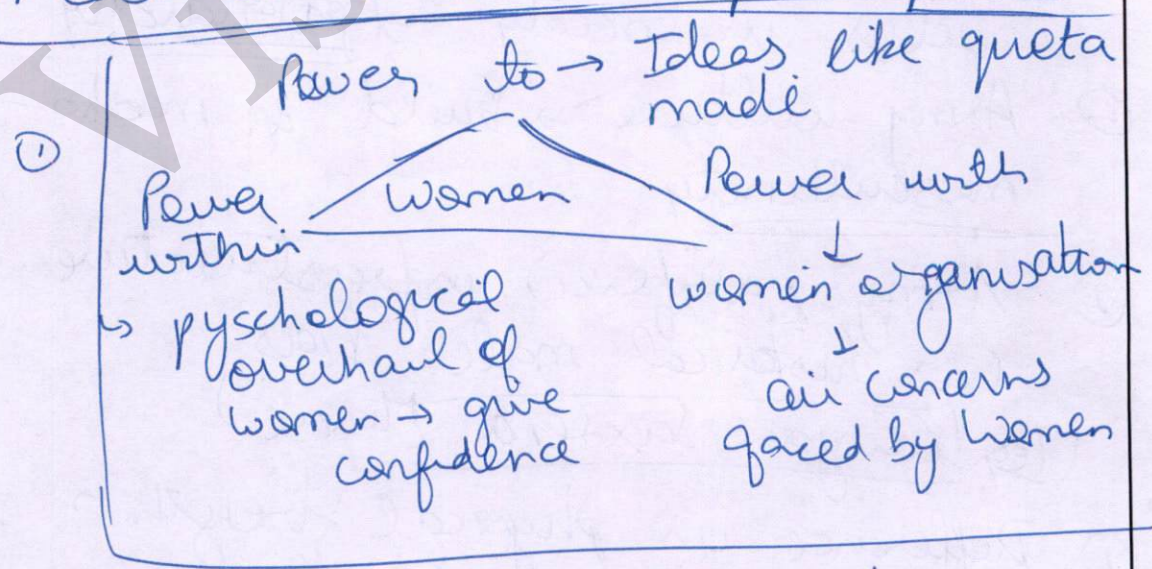 Power to → Ideas like quota
made
①
Women
Power
within
↳ pyschological
overhaul of
women → give
confidence
Power with
↓
women organisation
↓
air concerns
faced by women